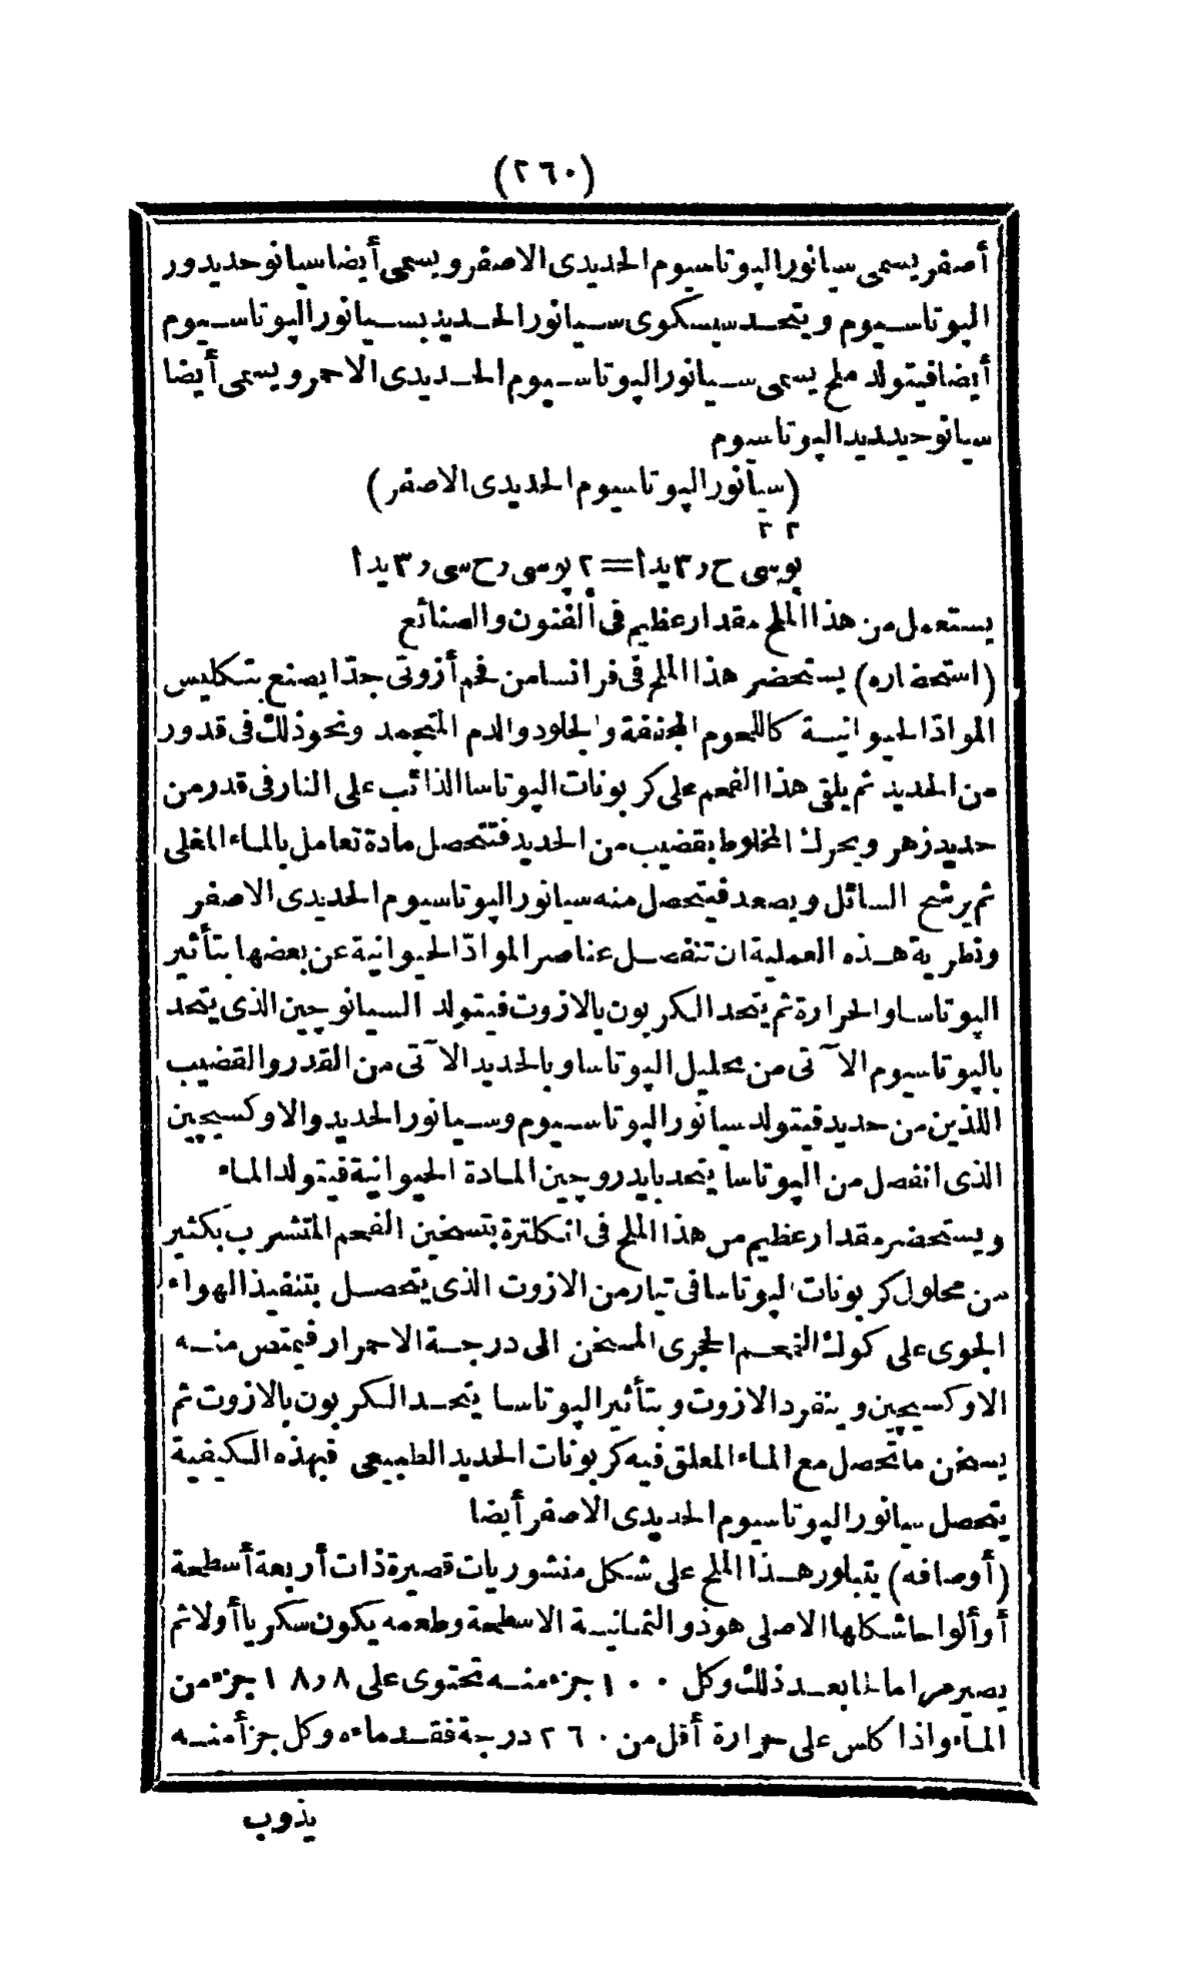 (٢٦٠)
أصفر يسمى سيانور البوتاسيوم الحديدى الاصفر ويسمى أيضا سيانو حديدور
البوتاسيوم ويتحد سيسكوى سيانور الحديد بسيانور البوتاسيوم
أيضا فيتولد ملح يسمى سيانور البوتاسيوم الحديدى الاحمر ويسمى أيضا
سيانو حيديديد البوتاسيوم
(سيانور البوتاسيوم الحديدى الاصفر)
٢ ٢
بو سى ح ر٣ يدا = ٢ بو سى ر ح سى ر٣ يدا
يستعمل من هذا الملح مقدار عظيم فى الفنون والصنائع
(استحضاره) يستحضر هذا الملح فى فرانسا من فحم أزوتى جدّا يصنع بتكليس
الموادّ الحيوانية كاللحوم المجففة والجلود والدم المتجمد ونحو ذلك فى قدور
من الحديد ثم يلقى هذا الفحم على كربونات البوتاسا الذائب على النار فى قدر من
حديد زهر ويحرك المخلوط بقضيب من الحديد فتتحصل مادة تعامل بالماء المغلى
ثم يرشح السائل ويصعد فيتحصل منه سيانور البوتاسيوم الحديدى الاصفر
ونظرية هذه العملية ان تنفصل عناصر الموادّ الحيوانية عن بعضها بتأثير
البوتاسا والحرارة ثم يتحد الكربون بالازوت فيتولد السيانوجين الذى يتحد
بالبوتاسيوم الآتى من تحليل البوتاسا وبالحديد الآتى من القدر والقضيب
اللذين من حديد فيتولد سيانور البوتاسيوم وسيانور الحديد والاوكسيجين
الذى انفصل من البوتاسا يتحد بايدروجين المادة الحيوانية فيتولد الماء
ويستحضر مقدار عظيم من هذا الملح فى انكلترة بتسخين الفحم المتشرب بكثير
من محلول كربونات البوتاسا فى تيار من الازوت الذى يتحصل بتنفيذ الهواء
الجوى على كوك الفحم الحجرى المسخن الى درجة الاحمرار فيمتص منه
الاوكسيجين وينفرد الازوت وبتأثير البوتاسا يتحد الكربون بالازوت ثم
يسخن ما تحصل مع الماء المعلق فيه كربونات الحديد الطبيعى فبهذه الكيفية
يتحصل سيانور البوتاسيوم الحديدى الاصفر أيضا
(أوصافه) يتبلور هذا الملح على شكل منشوريات قصيرة ذات أربعة أسطحة
أو ألواحا شكلها الاصلى هو ذو الثمانية الاسطحة وطعمه يكون سكريا أولا ثم
يصير مرا مالحا بعد ذلك وكل ١٠٠ جزء منه تحتوى على ٨ر١٨ جزء من
الماء واذا كلس على حرارة أقل من ٢٦٠ درجة فقد ماءه وكل جزأ منه
يذوب